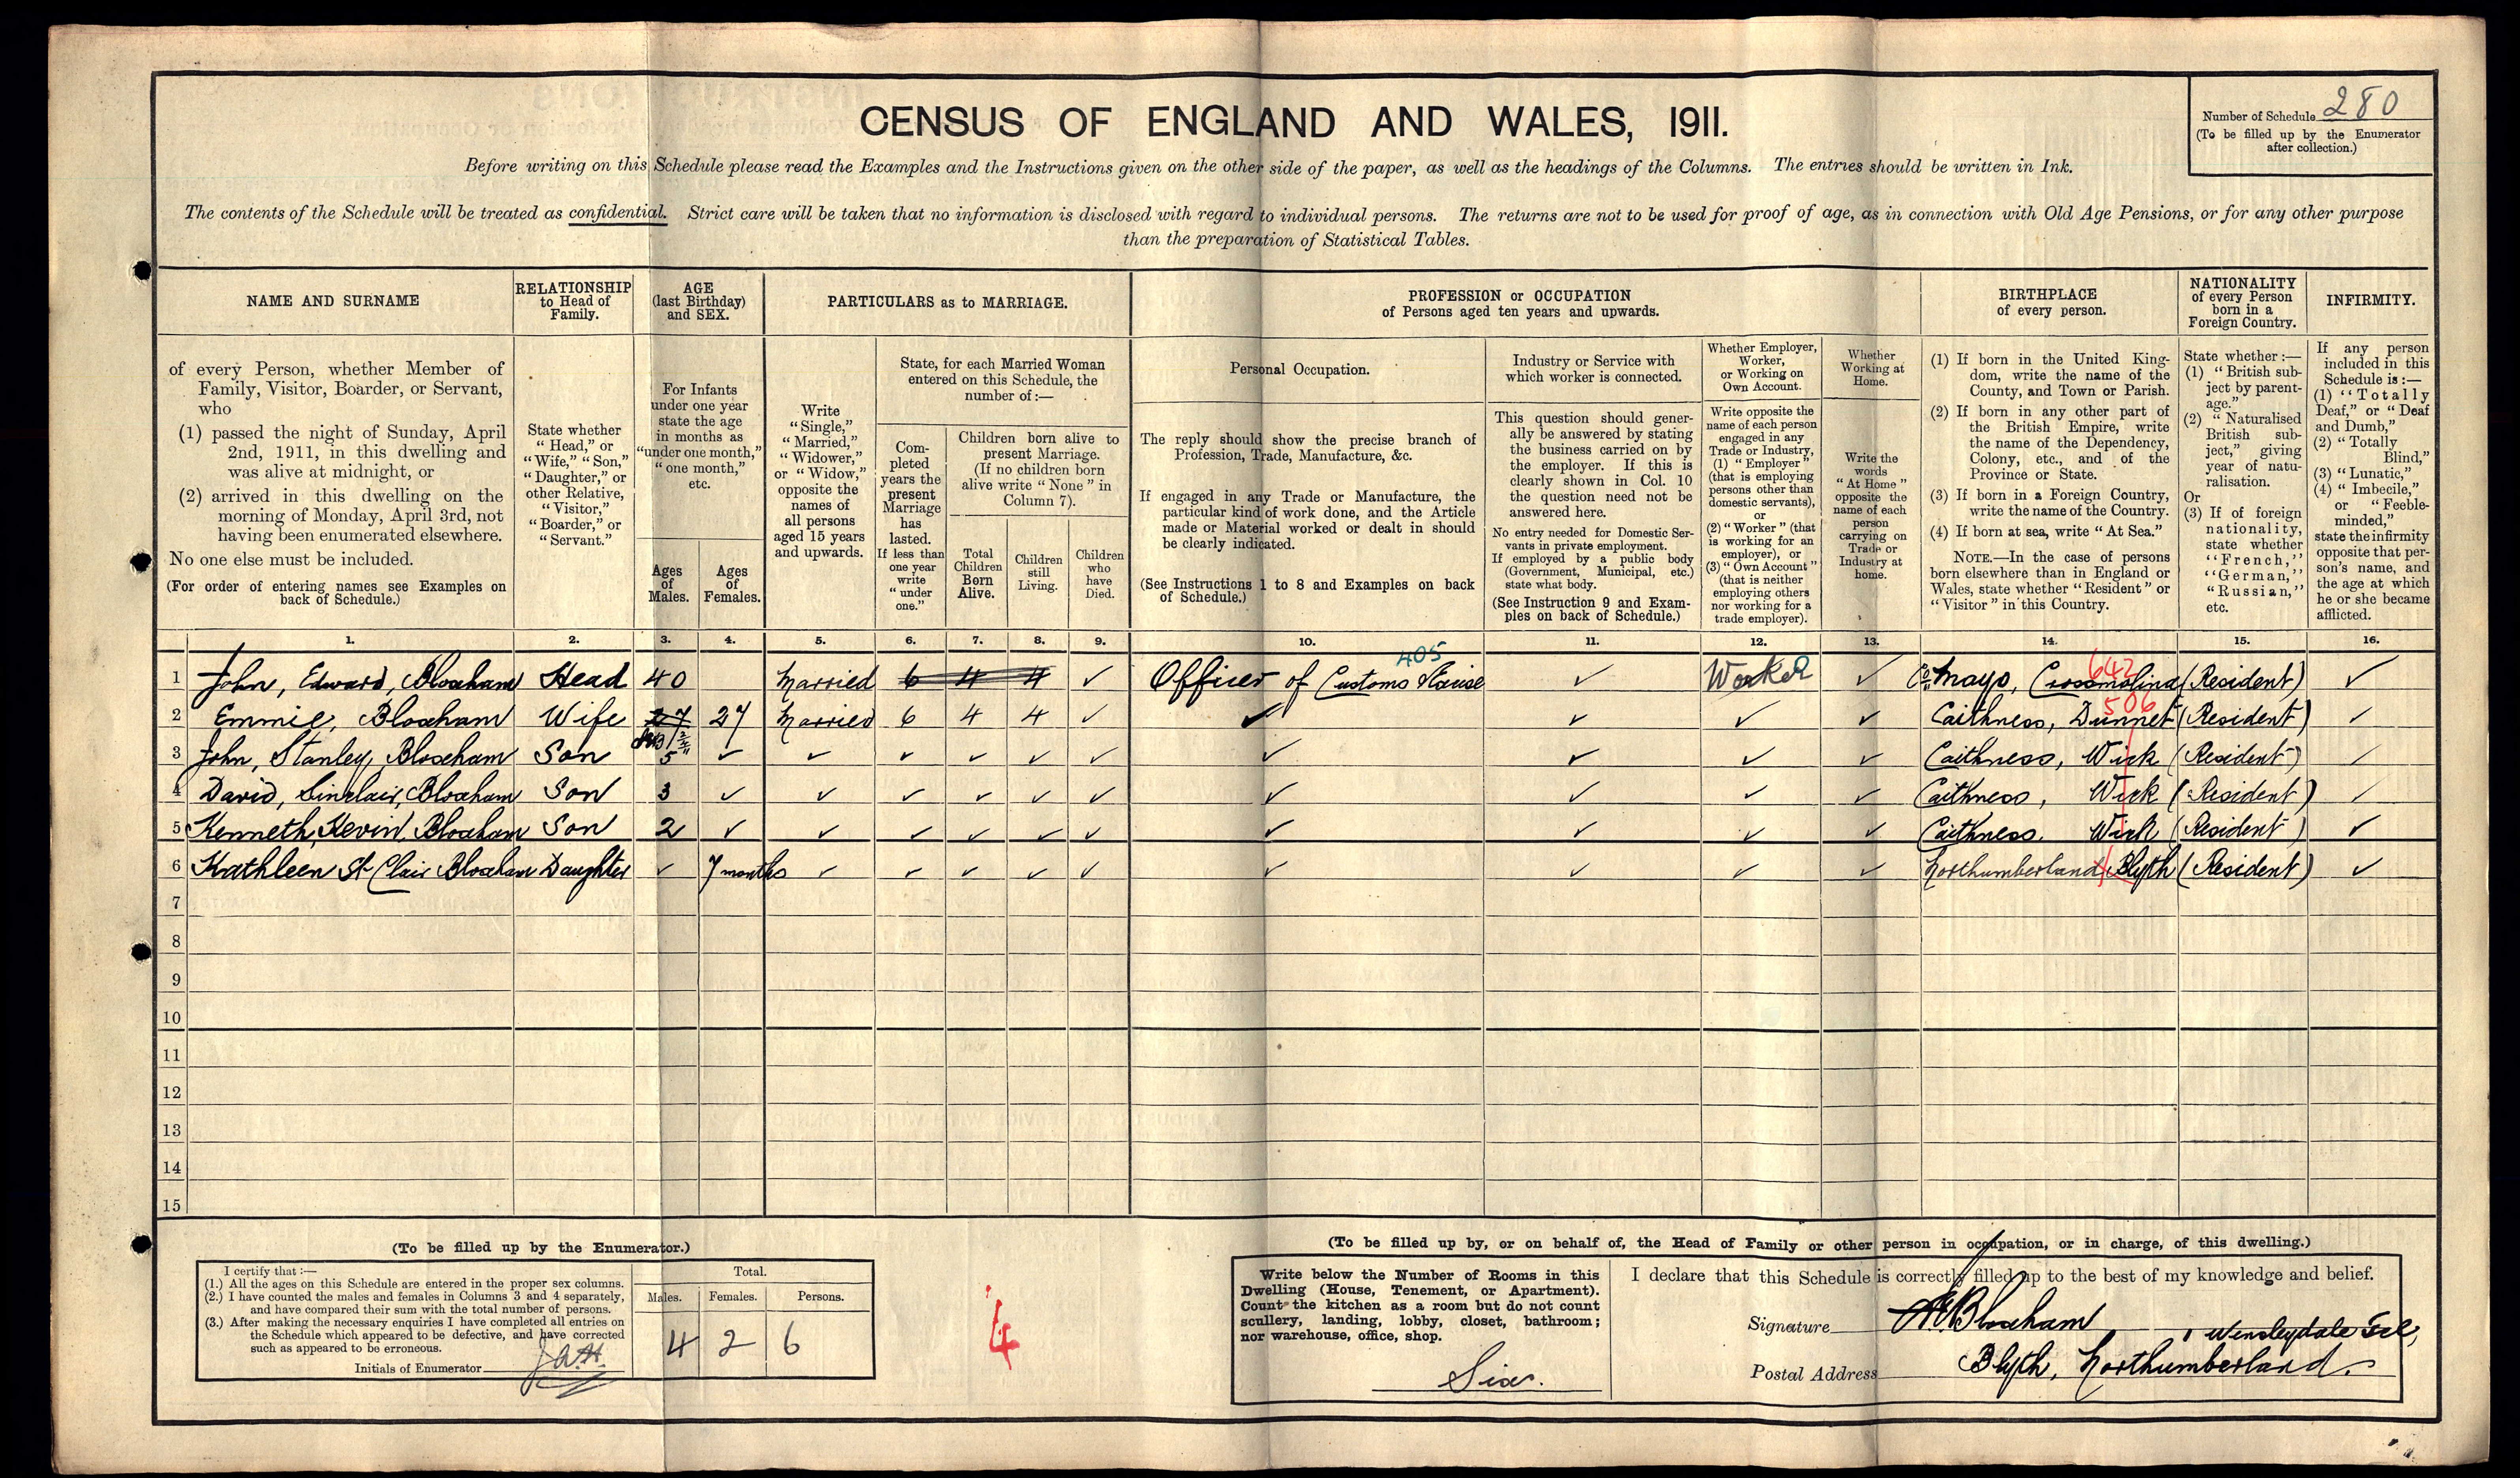 CENSUS OF ENGLAND AND WALES, 1911.
Number of Schedule 280
(To be filled up by the Enumerator
after collection.)
Before writing on this Schedule please read the Examples and the Instructions given on the other side of the paper, as well as the headings of the Columns. The entries should be written in Ink.
The contents of the Schedule will be treated as confidential. Strict care will be taken that no information is disclosed with regard to individual persons. The returns are not to be used for proof of age, as in connection with Old Age Pensions, or for any other purpose
than the preparation of Statistical Tables.
NAME AND SURNAME
of every Person, whether Member of
Family, Visitor, Boarder, or Servant,
who
(1) passed the night of Sunday, April
2nd, 1911, in this dwelling and
was alive at midnight, or
(2) arrived in this dwelling on the
morning of Monday, April 3rd, not
having been enumerated elsewhere.
No one else must be included.
(For order of entering names see Examples on
back of Schedule.)
RELATIONSHIP
to Head of
Family.
State whether
"Head," or
"Wife," "Son,"
"Daughter," or
other Relative,
"Visitor,"
"Boarder," or
"Servant."
AGE
(last Birthday)
and SEX.
For Infants
under one year
state the age
in months as
"under one month,"
"one month,"
etc.
Ages
of
Males.
Ages
of
Females.
PARTICULARS as to MARRIAGE.
Write
"Single,"
"Married,"
"Widower,"
or "Widow,"
opposite the
names of
all persons
aged 15 years
and upwards.
State, for each Married Woman
entered on this Schedule, the
number of:—
Com-
pleted
years the
present
Marriage
has
lasted.
If less than
one year
write
"under
one."
Children born alive to
present Marriage.
(If no children born
alive write "None" in
Column 7).
Total
Children
Born
Alive.
Children
still
Living.
Children
who
have
Died.
PROFESSION or OCCUPATION
of Persons aged ten years and upwards.
Personal Occupation.
The reply should show the precise branch of
Profession, Trade, Manufacture, &c.
If engaged in any Trade or Manufacture, the
particular kind of work done, and the Article
made or Material worked or dealt in should
be clearly indicated.
(See Instructions 1 to 8 and Examples on back
of Schedule.)
Industry or Service with
which worker is connected.
This question should gener-
ally be answered by stating
the business carried on by
the employer. If this is
clearly shown in Col. 10
the question need not be
answered here.
No entry needed for Domestic Ser-
vants in private employment.
If employed by a public body
(Government, Municipal, etc.)
state what body.
(See Instruction 9 and Exam-
ples on back of Schedule.)
Whether Employer,
Worker,
or Working on
Own Account.
Write opposite the
name of each person
engaged in any
Trade or Industry,
(1) "Employer"
(that is employing
persons other than
domestic servants),
or
(2) "Worker" (that
is working for an
employer), or
(3) "Own Account"
(that is neither
employing others
nor working for a
trade employer).
Whether
Working at
Home.
Write the
words
"At Home"
opposite the
name of each
person
carrying on
Trade or
Industry at
home.
BIRTHPLACE
of every person.
(1) If born in the United King-
dom, write the name of the
County, and Town or Parish.
(2) If born in any other part of
the British Empire, write
the name of the Dependency,
Colony, etc., and of the
Province or State.
(3) If born in a Foreign Country,
write the name of the Country.
(4) If born at sea, write "At Sea."
NOTE.—In the case of persons
born elsewhere than in England or
Wales, state whether "Resident" or
"Visitor" in this Country.
NATIONALITY
of every Person
born in a
Foreign Country.
State whether:—
(1) "British sub-
ject by parent-
age."
(2) "Naturalised
British sub-
ject," giving
year of natu-
ralisation.
Or
(3) If of foreign
nationality,
state whether
"French,"
"German,"
"Russian,"
etc.
INFIRMITY.
If any person
included in this
Schedule is:—
(1) "Totally
Deaf," or "Deaf
and Dumb,"
(2) "Totally
Blind,"
(3) "Lunatic,"
(4) "Imbecile,"
or "Feeble-
minded,"
state the infirmity
opposite that per-
son's name, and
the age at which
he or she became
afflicted.
1. 2. 3. 4. 5. 6. 7. 8. 9. 10. 11. 12. 13. 14. 15. 16.
405 642
1 John, Edward, Bloxham Head 40 Married 6 4 4 ✓ Officer of Customs & Excise ✓ Worker ✓ Co. Mayo, Crossmolina (Resident) ✓
506
2 Emmie, Bloxham Wife 27 27 Married 6 4 4 ✓ ✓ ✓ ✓ ✓ Caithness, Dunnet (Resident) ✓
3 John, Stanley, Bloxham Son 5 ✓ ✓ ✓ ✓ ✓ ✓ ✓ ✓ ✓ ✓ Caithness, Wick (Resident) ✓
4 David, Sinclair, Bloxham Son 3 ✓ ✓ ✓ ✓ ✓ ✓ ✓ ✓ ✓ ✓ Caithness, Wick (Resident) ✓
5 Kenneth, Kevin, Bloxham Son 2 ✓ ✓ ✓ ✓ ✓ ✓ ✓ ✓ ✓ ✓ Caithness, Wick (Resident) ✓
6 Kathleen St Clair Bloxham Daughter ✓ 7 months ✓ ✓ ✓ ✓ ✓ ✓ ✓ ✓ ✓ Northumberland, Blyth (Resident) ✓
7
8
9
10
11
12
13
14
15
(To be filled up by the Enumerator.)
I certify that:—
(1.) All the ages on this Schedule are entered in the proper sex columns.
(2.) I have counted the males and females in Columns 3 and 4 separately,
and have compared their sum with the total number of persons.
(3.) After making the necessary enquiries I have completed all entries on
the Schedule which appeared to be defective, and have corrected
such as appeared to be erroneous.
Initials of Enumerator J.A.H.
Total.
Males. Females. Persons.
4 2 6
4
(To be filled up by, or on behalf of, the Head of Family or other person in occupation, or in charge, of this dwelling.)
Write below the Number of Rooms in this
Dwelling (House, Tenement, or Apartment).
Count the kitchen as a room but do not count
scullery, landing, lobby, closet, bathroom;
nor warehouse, office, shop.
Six.
I declare that this Schedule is correctly filled up to the best of my knowledge and belief.
Signature J E Bloxham
Wensleydale Tce,
Postal Address Blyth, Northumberland.